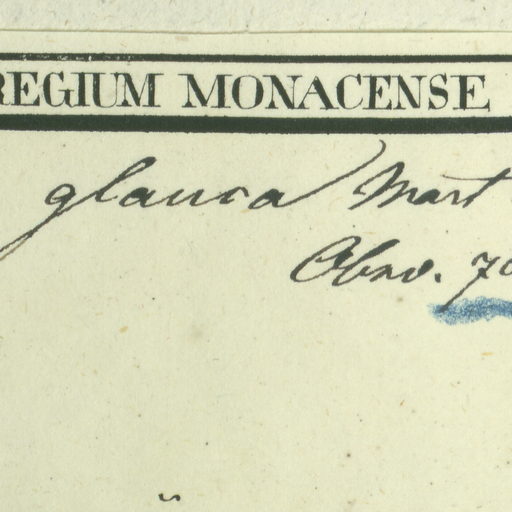 REGIUM MONACENSE
glauca Mart
Obsv. 70